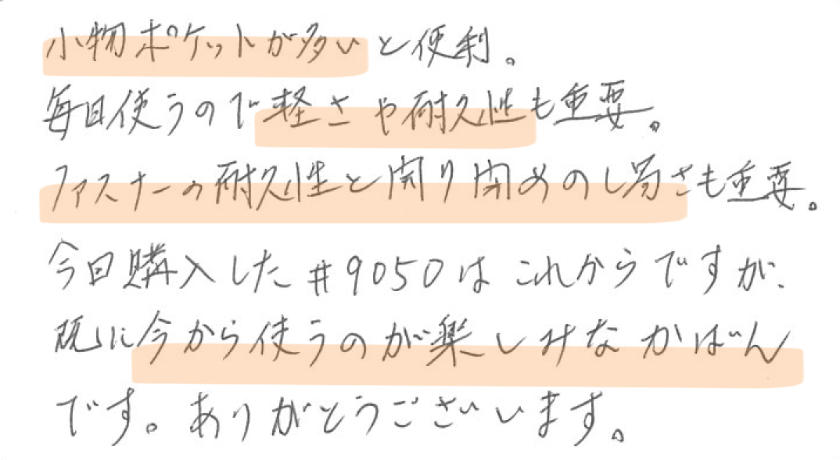 小物ポケットが多いと便利。
毎日使うので軽さや耐久性も重要。
ファスナーの耐久性と開け閉めのし易さも重要。
今回購入した#9050はこれからですが、
既に今から使うのが楽しみなかばん
です。ありがとうございます。